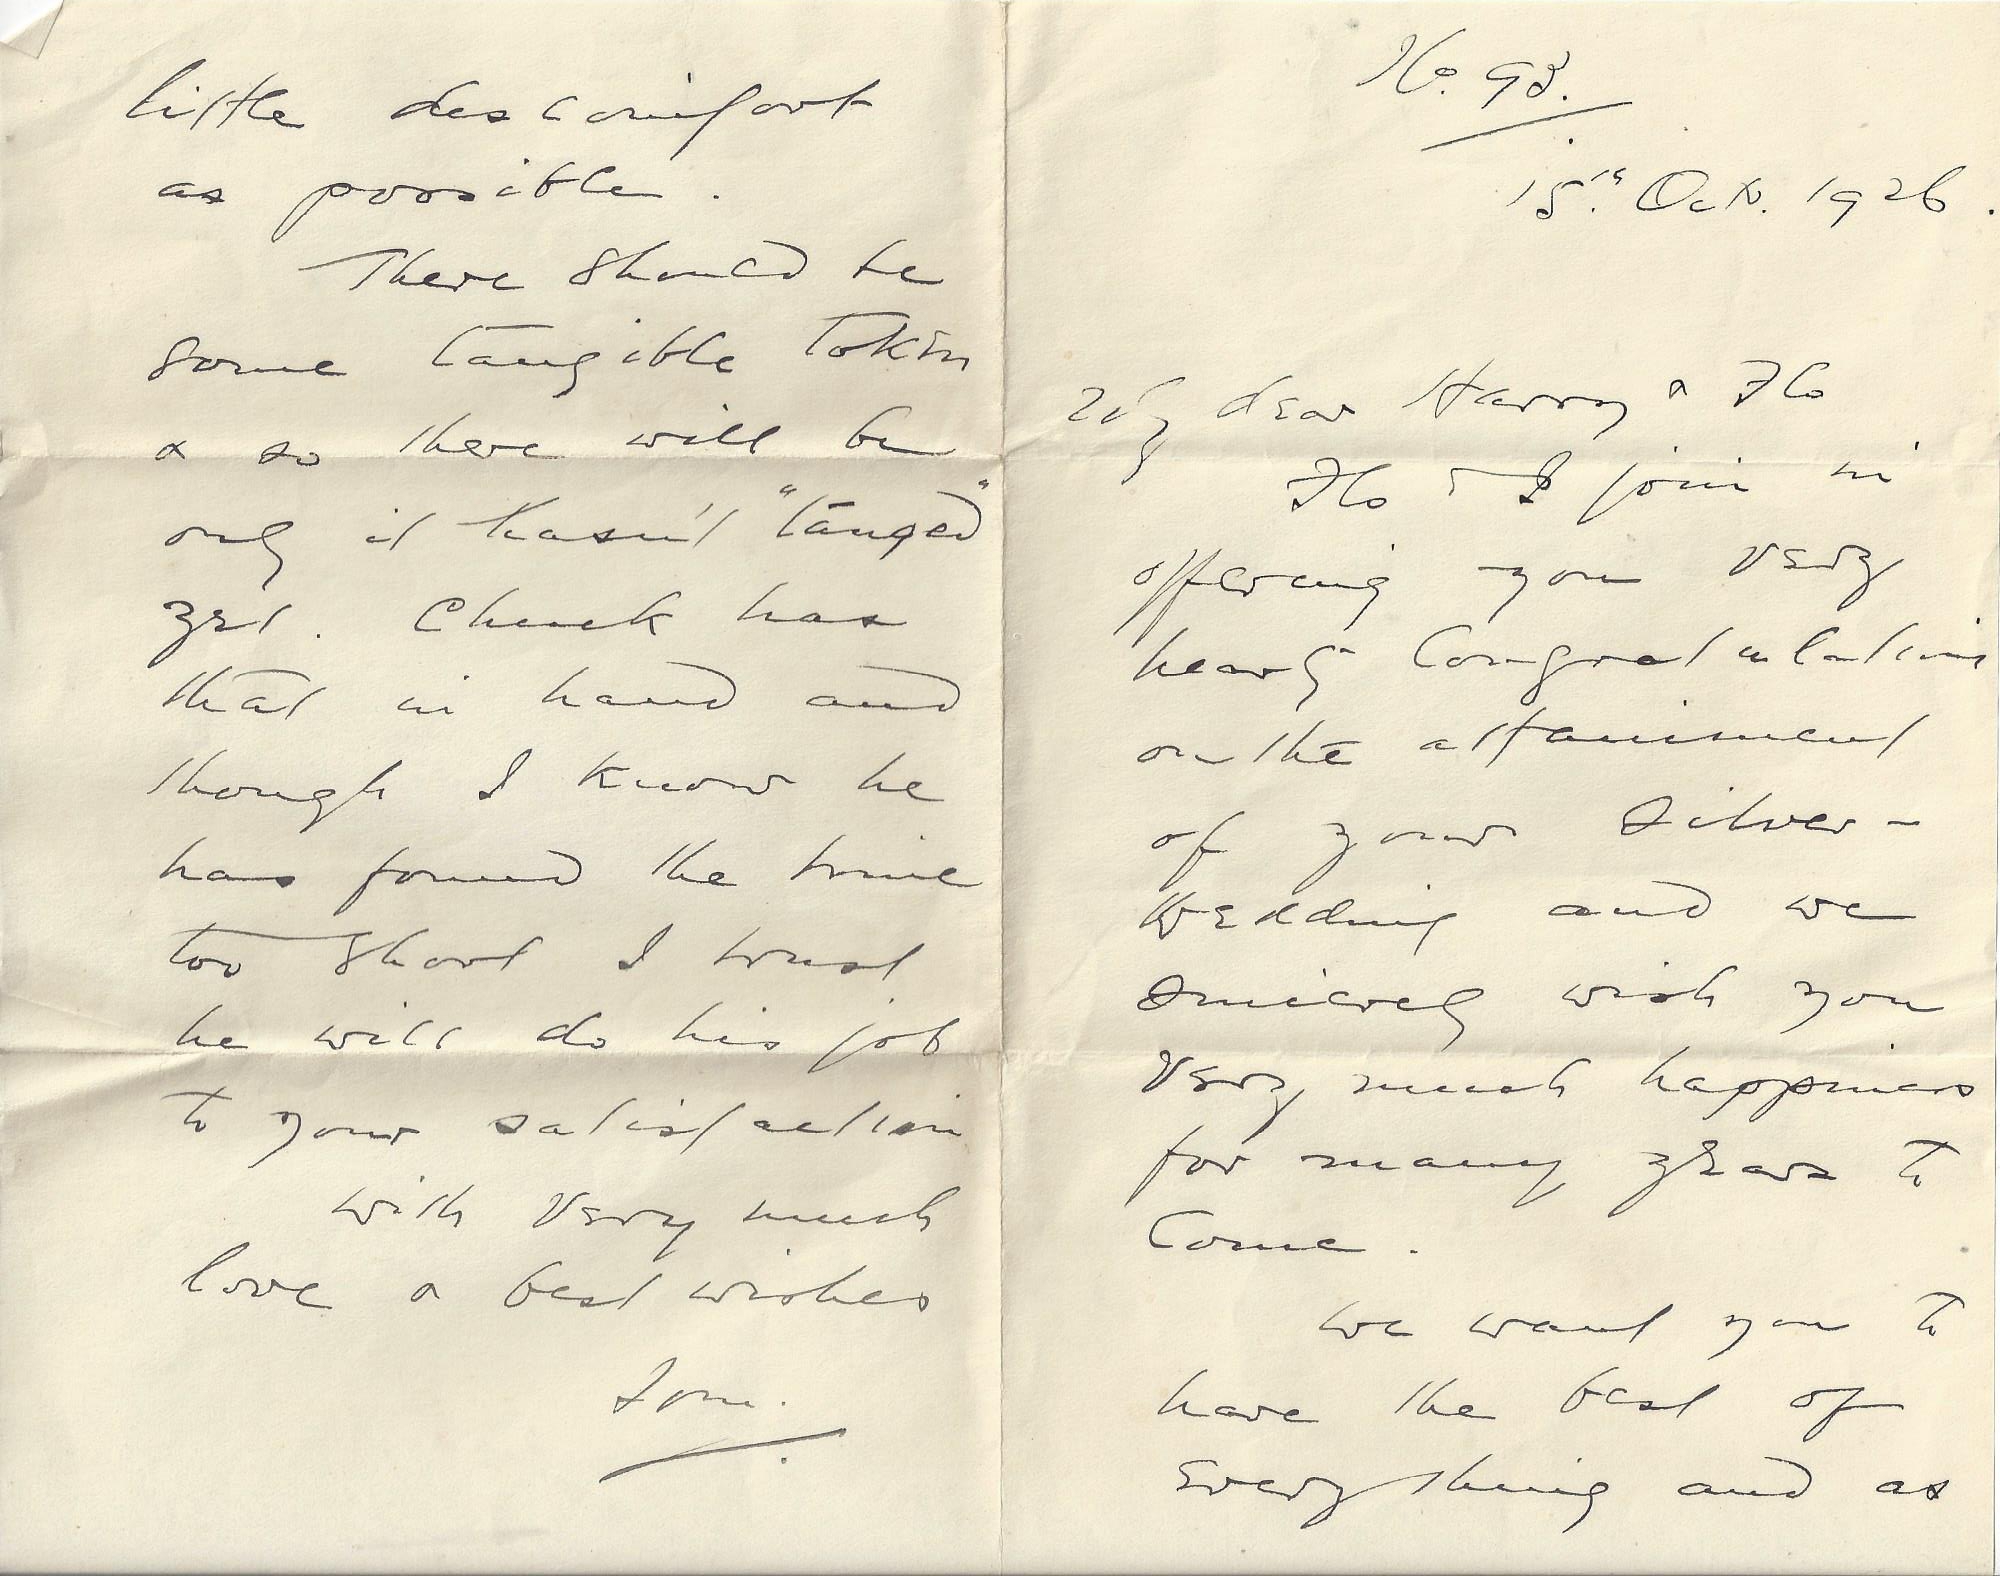 No. 98.
15th Oct. 1926.
My dear Harry & Flo
Flo & I join in
offering you very
hearty Congratulations
on the attainment
of your Silver-
Wedding and we
Sincerely wish you
Very much happiness
for many years to
Come.
We want you to
have the best of
Everything and as
little descomfort
as possible.
There should be
Some tangible Token
& so there will be
only it hasn't "tanged"
yet. Chuck has
that in hand and
though I know he
has found the time
too short I trust
he will do his job
to your satisfaction
with very much
love & best wishes
Tom.